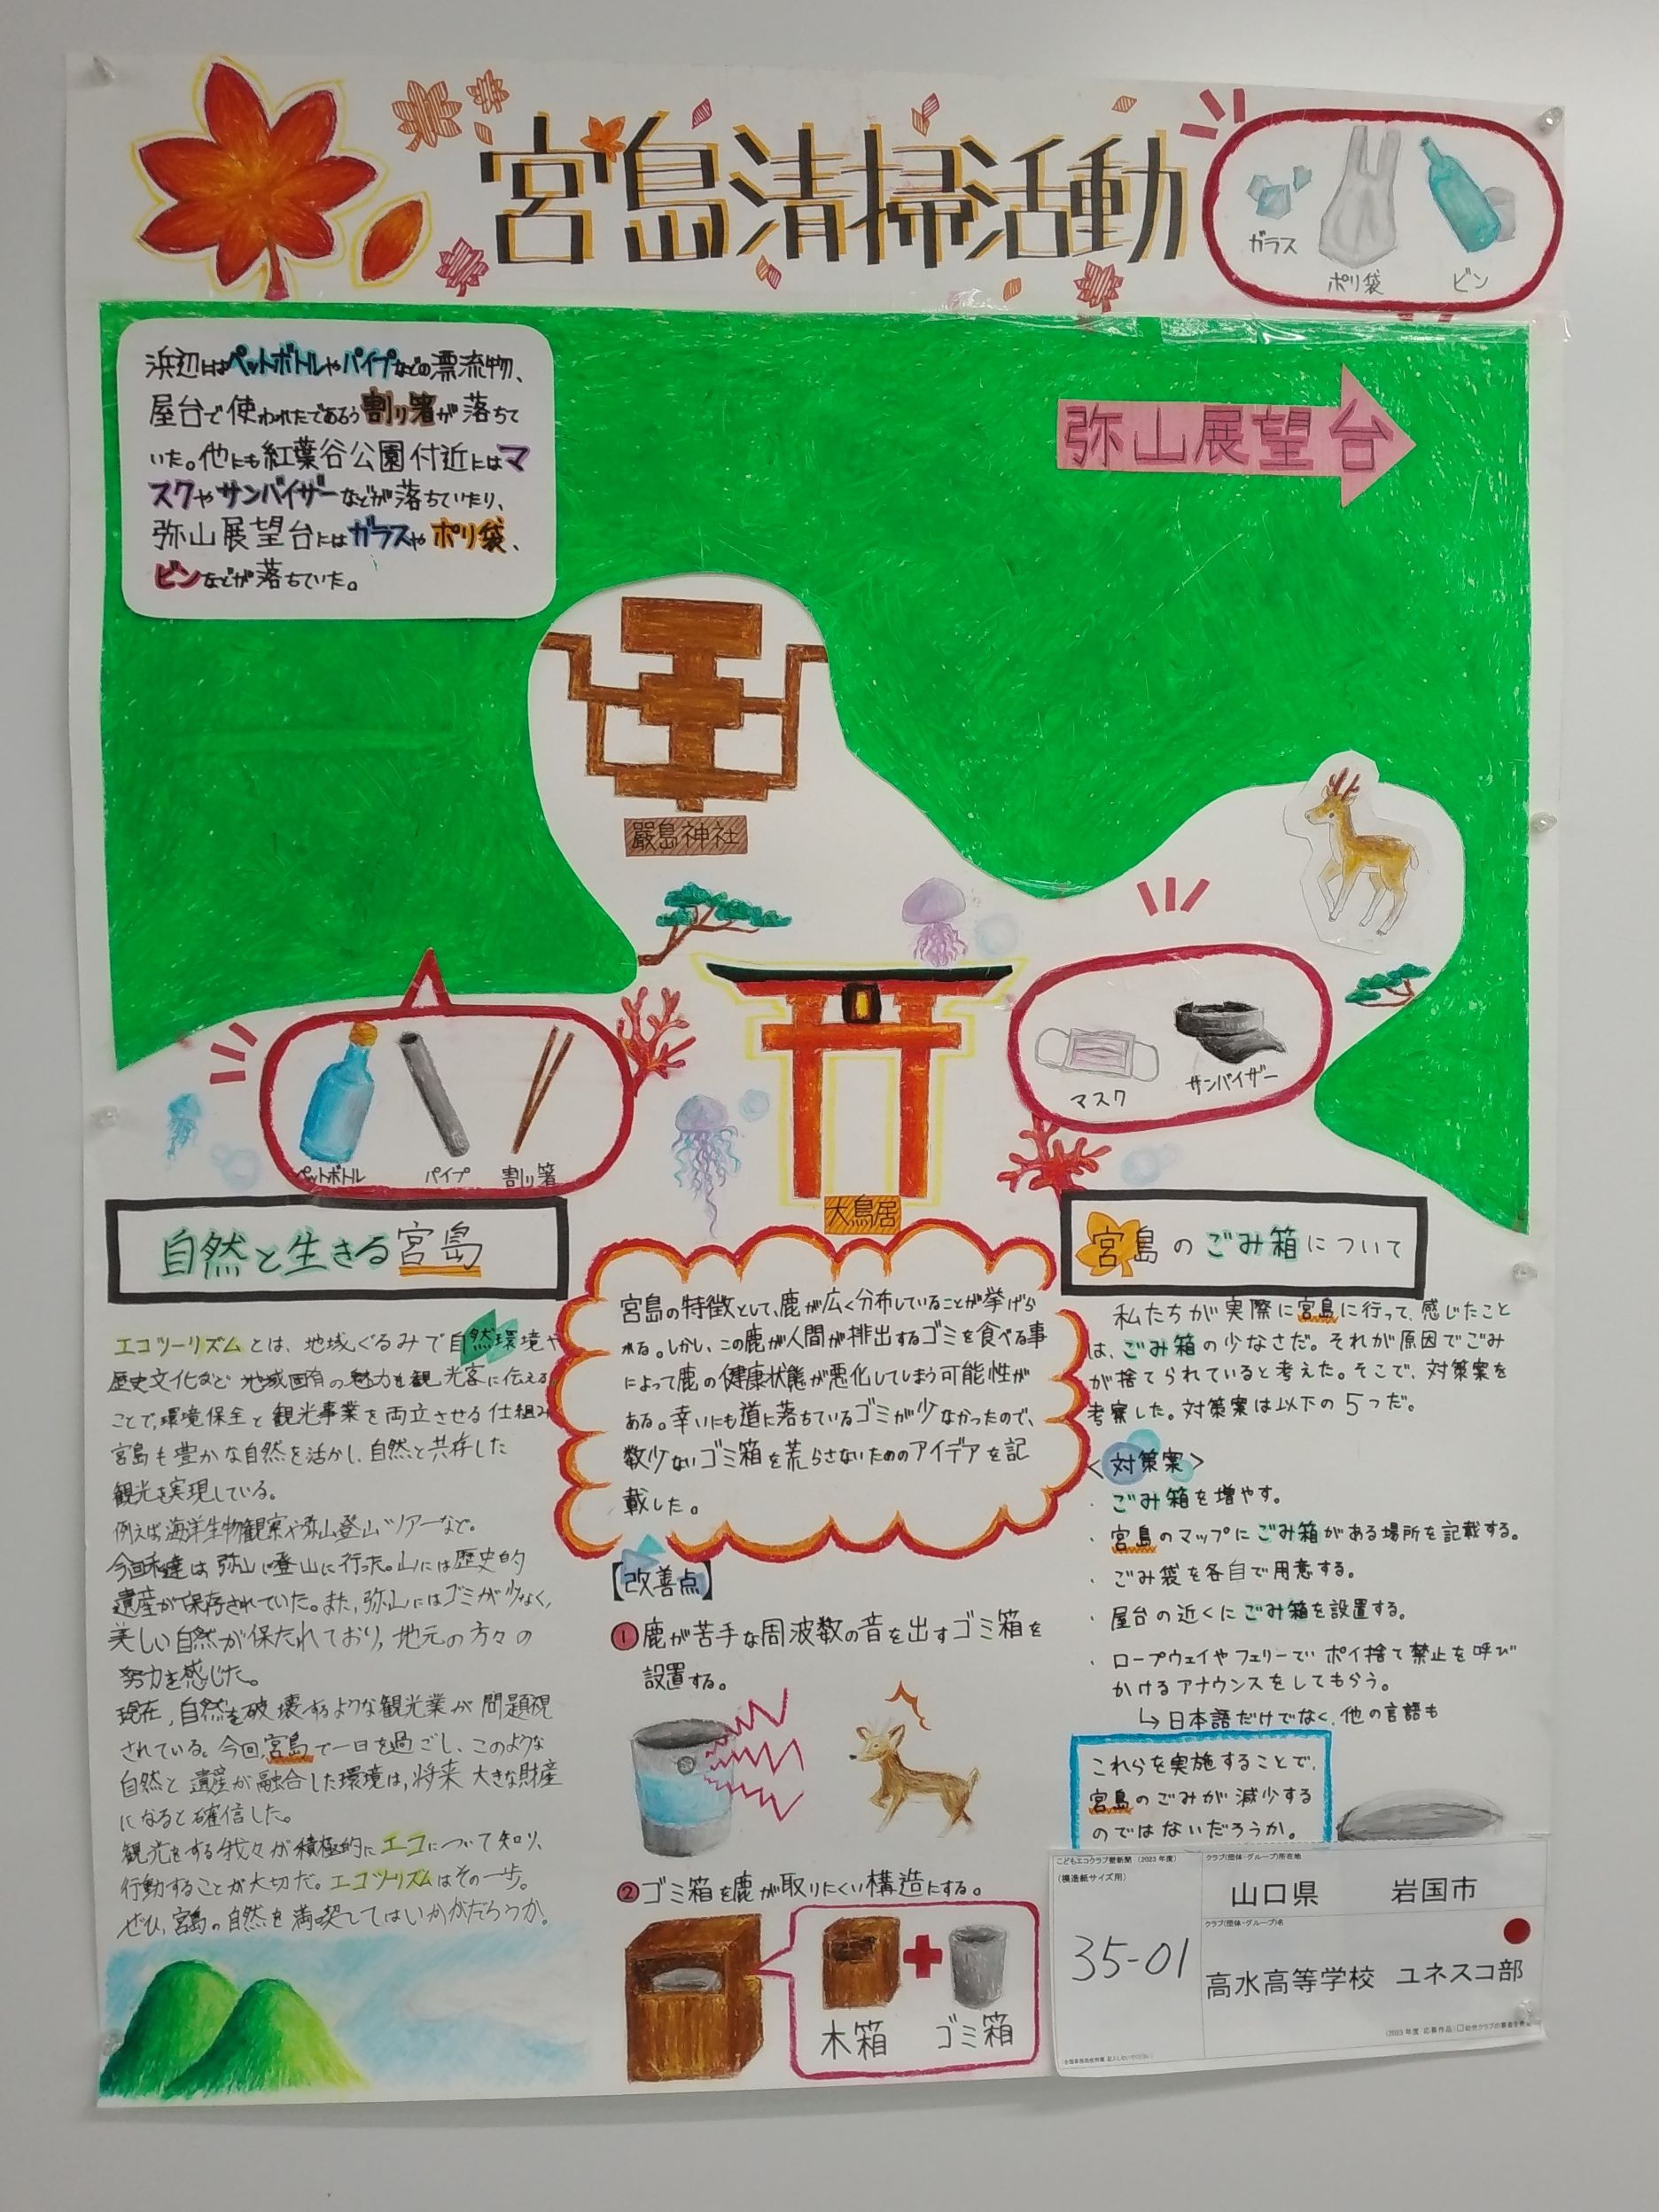 宮島清掃活動
ガラス
ポリ袋
ビン
浜辺にはペットボトルやパイプなどの漂流物、
屋台で使われたであろう割り箸が落ちて
いた。他にも紅葉谷公園付近にはマ
スクやサンバイザーなどが落ちていたり、
弥山展望台にはガラスやポリ袋、
ビンなどが落ちていた。
弥山展望台
嚴島神社
ペットボトル
パイプ
割り箸
マスク
サンバイザー
大鳥居
自然と生きる宮島
エコツーリズムとは、地域ぐるみで自然環境や
歴史文化など地域固有の魅力を観光客に伝える
ことで、環境保全と観光事業を両立させる仕組み
宮島も豊かな自然を活かし、自然と共存した
観光を実現している。
例えば海洋生物観察や弥山登山ツアーなど。
今回私達は弥山に登山に行った。山には歴史的
遺産が保存されていた。また、弥山にはゴミが少なく、
美しい自然が保たれており、地元の方々の
努力を感じた。
現在、自然を破壊するような観光業が問題視
されている。今回、宮島で一日を過ごし、このような
自然と遺産が融合した環境は、将来大きな財産
になると確信した。
観光をする我々が積極的にエコについて知り、
行動することが大切だ。エコツーリズムはその一歩。
ぜひ、宮島の自然を満喫してはいかがだろうか。
宮島の特徴として、鹿が広く分布していることが挙げら
れる。しかし、この鹿が人間が排出するゴミを食べる事
によって鹿の健康状態が悪化してしまう可能性が
ある。幸いにも道に落ちているゴミが少なかったので、
数少ないゴミ箱を荒らさないためのアイデアを記
載した。
【改善点】
①鹿が苦手な周波数の音を出すゴミ箱を
設置する。
②ゴミ箱を鹿が取りにくい構造にする。
木箱
ゴミ箱
宮島のごみ箱について
私たちが実際に宮島に行って、感じたこと
は、ごみ箱の少なさだ。それが原因でごみ
が捨てられていると考えた。そこで、対策案を
考察した。対策案は以下の5つだ。
<対策案>
・ごみ箱を増やす。
・宮島のマップにごみ箱がある場所を記載する。
・ごみ袋を各自で用意する。
・屋台の近くにごみ箱を設置する。
・ロープウェイやフェリーでポイ捨て禁止を呼び
かけるアナウンスをしてもらう。
↳日本語だけでなく、他の言語も
これらを実施することで、
宮島のごみが減少する
のではないだろうか。
こどもエコクラブ壁新聞(2023年度)
(模造紙サイズ用)
35-01
クラブ(団体・グループ)所在地
山口県 岩国市
クラブ(団体・グループ)名
高水高等学校 ユネスコ部